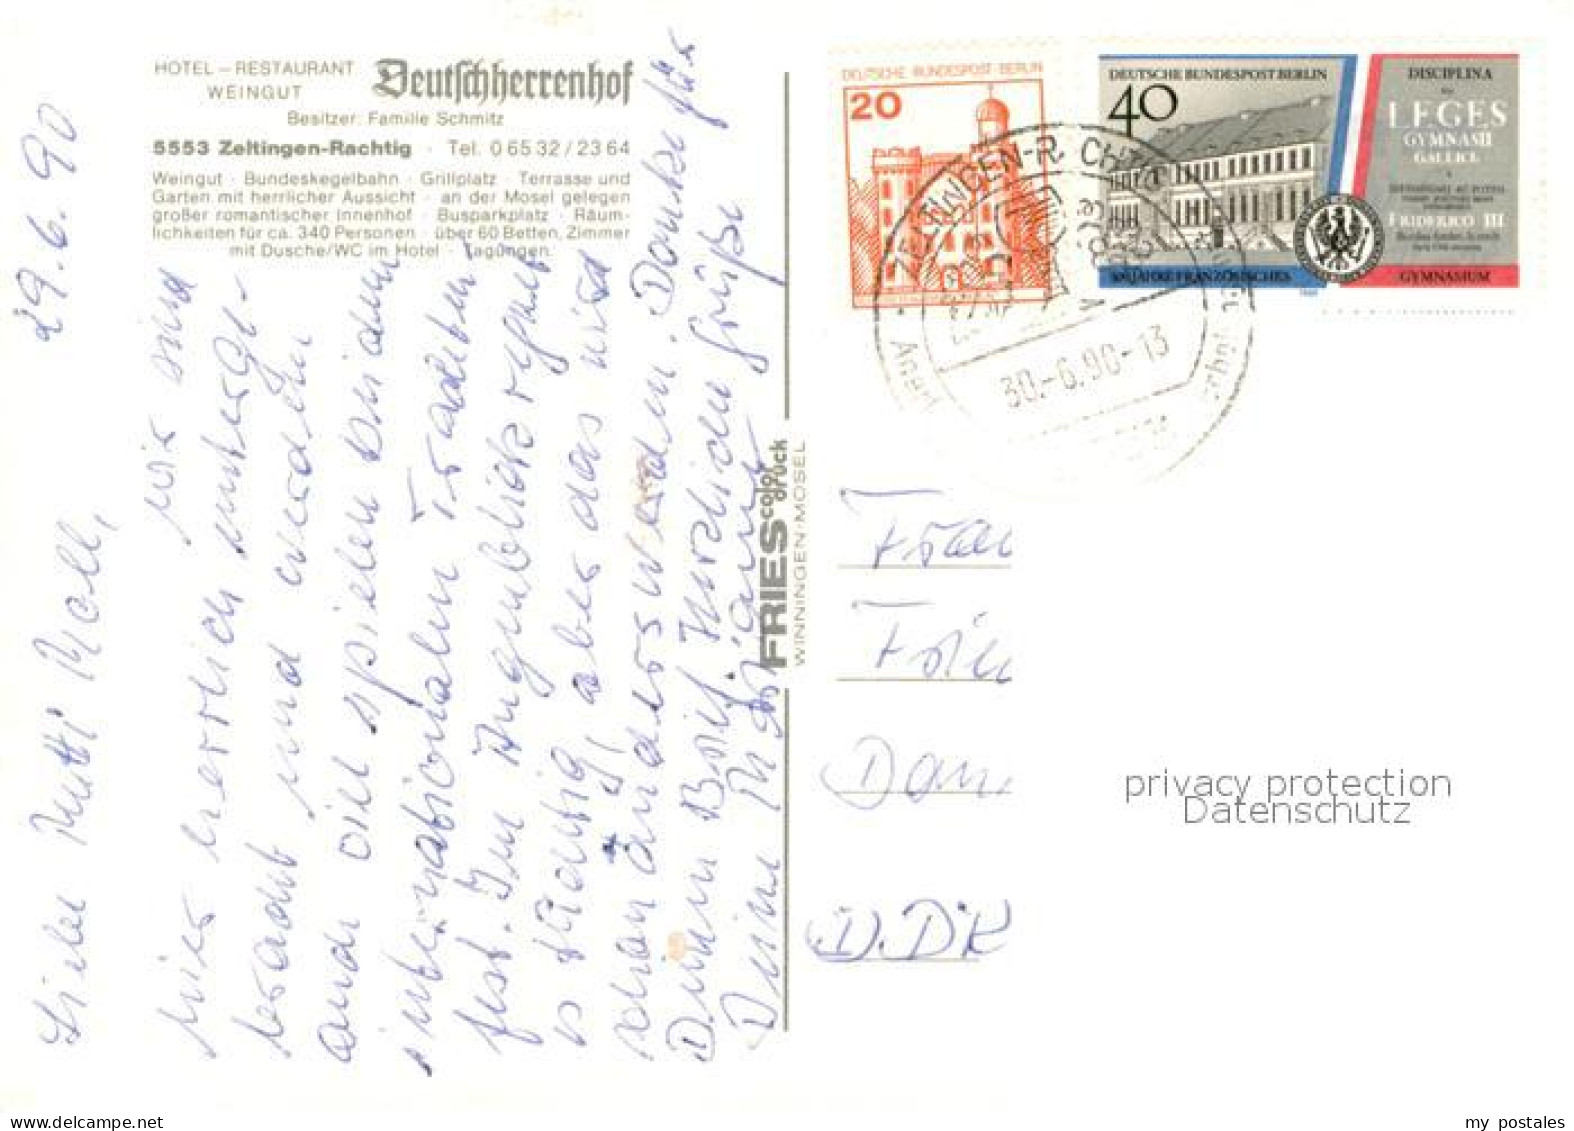 HOTEL – RESTAURANT
WEINGUT
Deutschherrenhof
Besitzer: Familie Schmitz
5553 Zeltingen-Rachtig · Tel. 0 65 32 / 23 64
Weingut · Bundeskegelbahn · Grillplatz · Terrasse und
Garten mit herrlicher Aussicht · an der Mosel gelegen
großer romantischer Innenhof · Busparkplatz · Räum-
lichkeiten für ca. 340 Personen · über 60 Betten, Zimmer
mit Dusche/WC im Hotel · Tagungen.
29.6.90
Liebe Mutti
wir sind
hier herrlich unterge-
bracht und werden
auch viel spielen bei dem
internationalen Trachten
fest. Im Augenblick regnet
es tüchtig, aber das wird
schon anders werden. Danke für
Deinen Brief. Herzliche Grüße
Deine
FRIES color druck
WINNINGEN-MOSEL
DEUTSCHE BUNDESPOST BERLIN
20
DEUTSCHE BUNDESPOST BERLIN
40
300 JAHRE FRANZÖSISCHES
GYMNASIUM
DISCIPLINA
LEGES
GYMNASII
GALLICI
FRIDERICO III
ZELTINGEN-RACHTIG
30.-6.90-13
privacy protection
Datenschutz
my postales